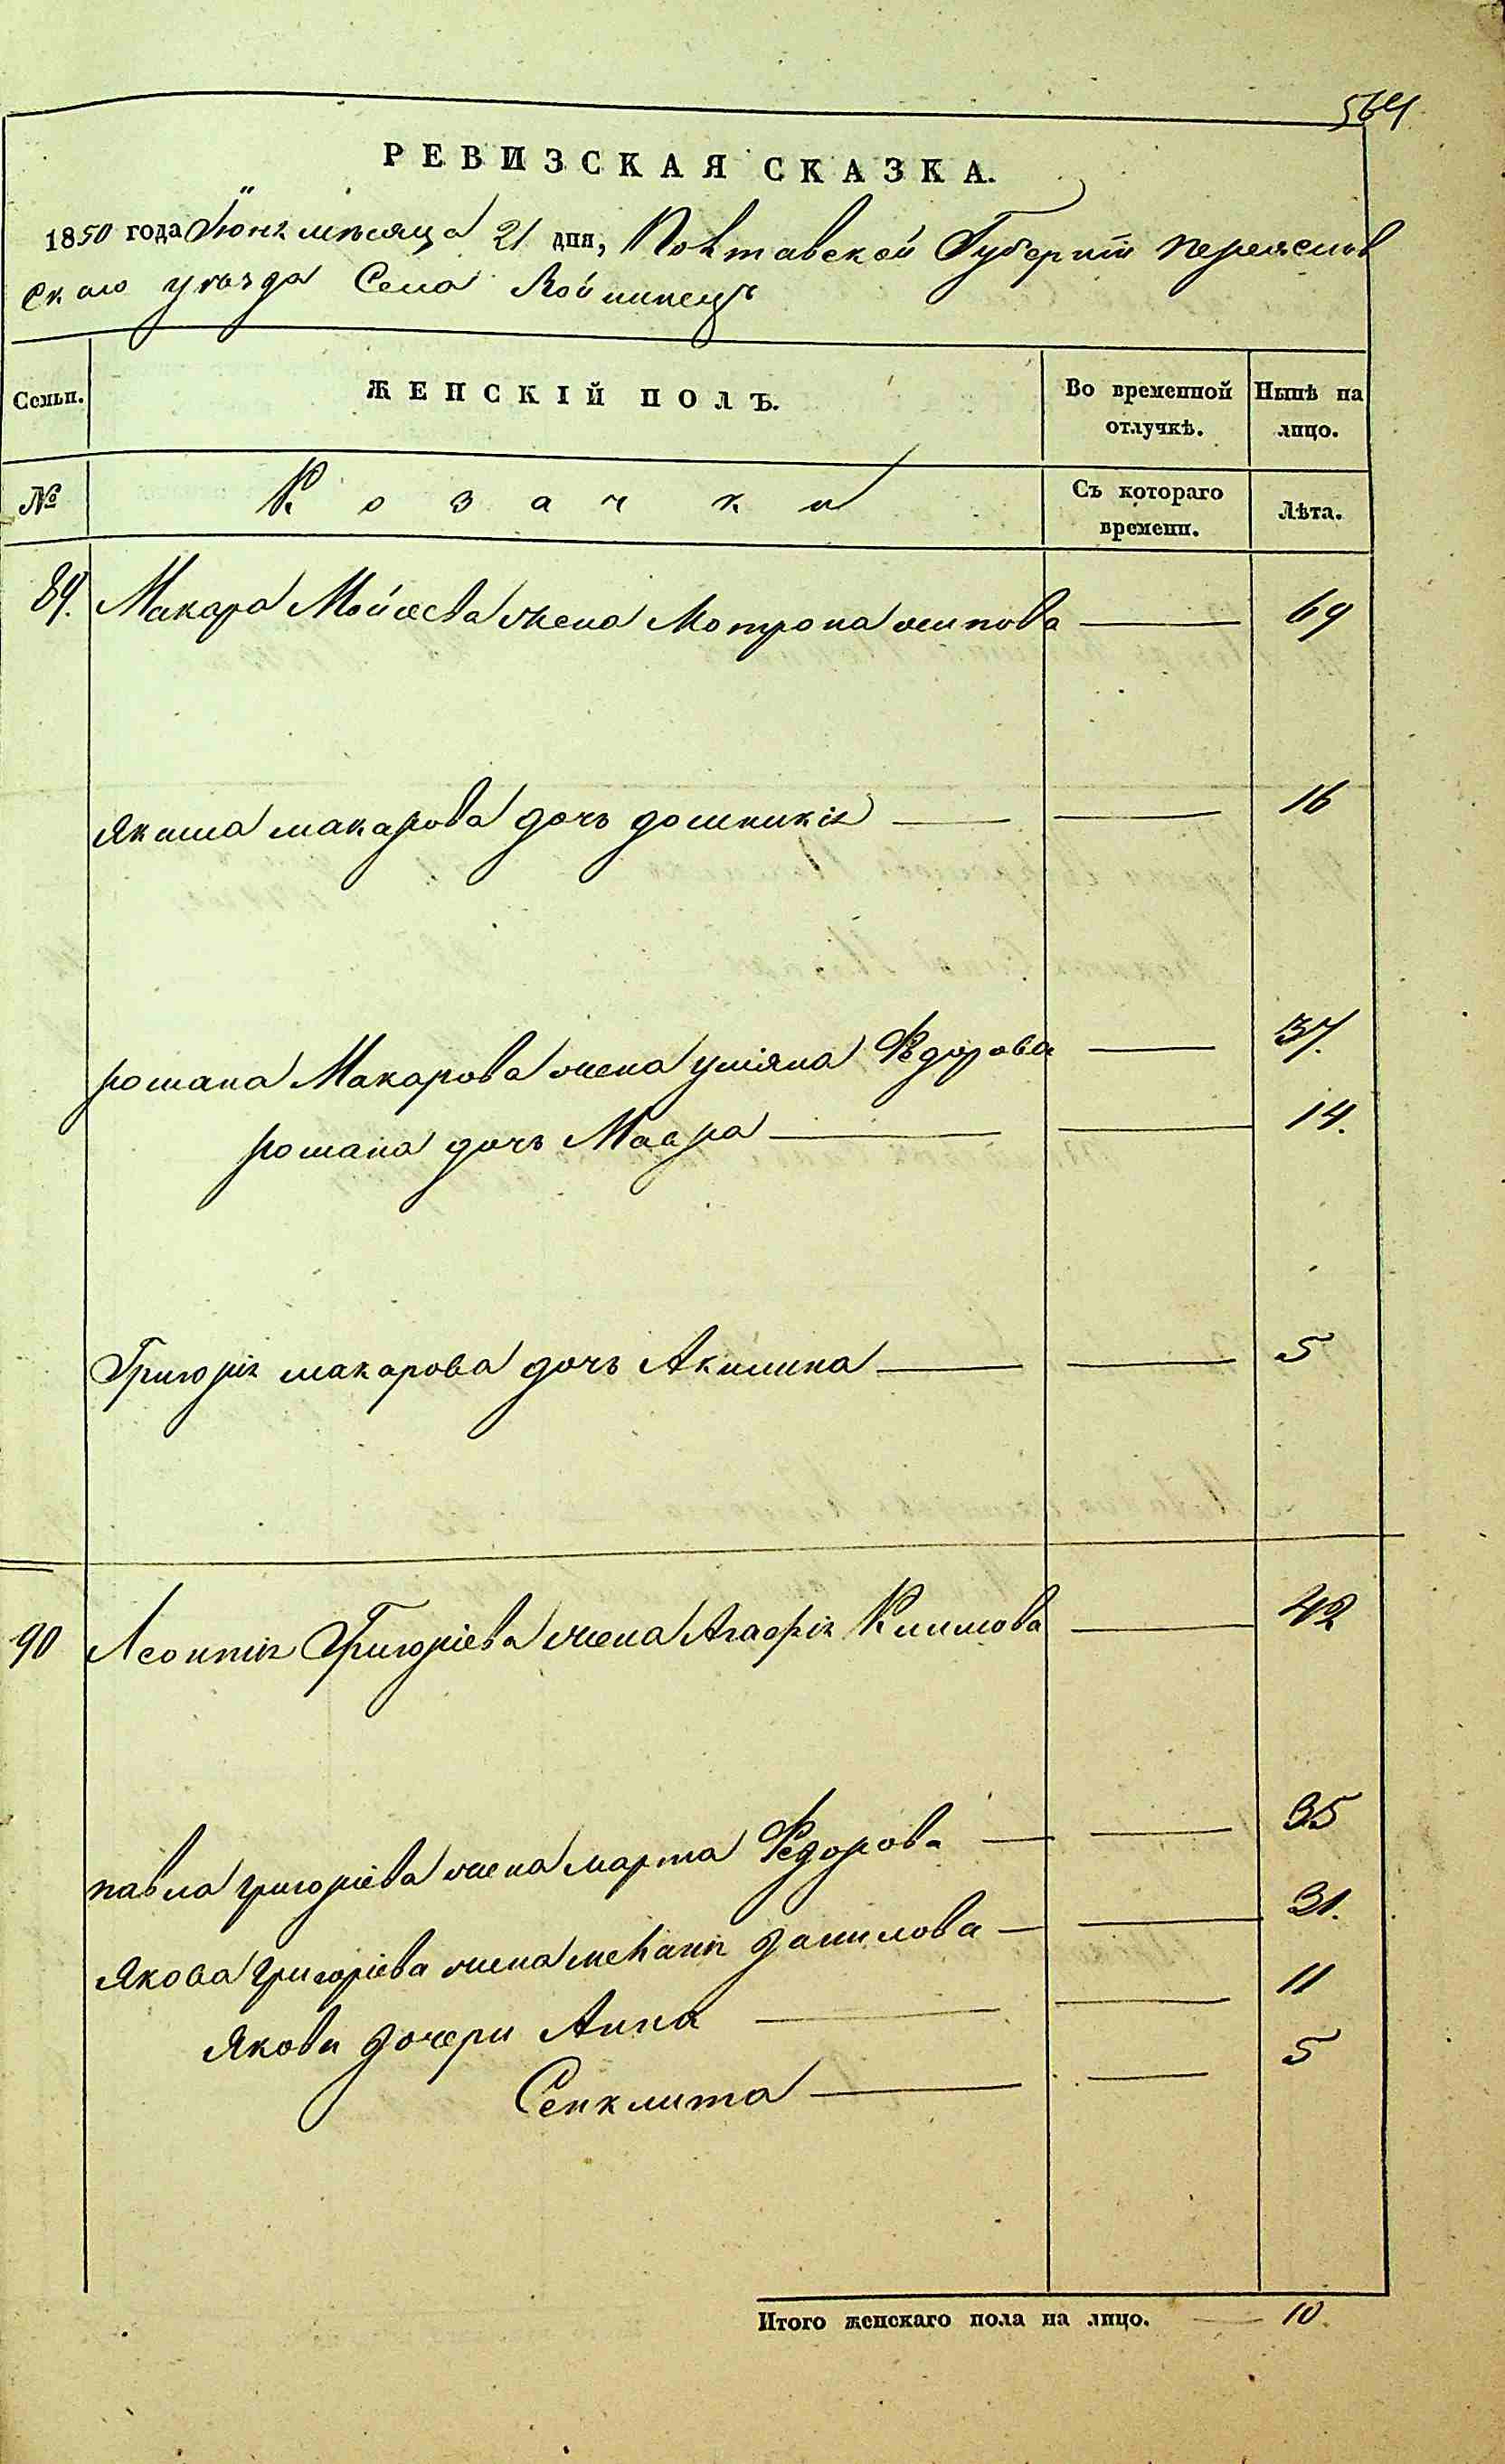 564
РЕВИЗСКАЯ СКАЗКА.
1850 года Іюня мѣсяца 21 дня, Полтавской Губерніи переяслов
скаго уѣзда Села Войнинецъ
Семьи.
ЖЕНСКІЙ ПОЛЪ.
Во временной отлучкѣ.
Нынѣ на лицо.
№
Козачки
Съ котораго времени.
Лѣта.
89. Макара Мойсеева жена Мотрона осипова 69
Якима макарова дочь домникія 16
романа Макарова жена уліяна Федорова 37.
романа дочь Мавра 14.
Григорія макарова дочь Акилина 5
90 Леонтія Григоріева жена Агафія Климова 42
павла григоріева жена марта Федорова 35
Якова григоріева жена меланія данилова 31.
Якова дочери Анна 11
Сенклита 5
Итого женскаго пола на лицо. 10.